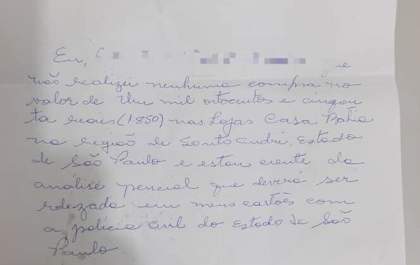 Eu,
e
não realizei nenhuma compra no
valor de Um mil oitocentos e cinquen
ta reais (1850) nas Lojas Casa Bahia
na região de Santo André, Estado
de São Paulo e estou ciente da
análise pericial que deverá ser
realizada em meus cartões com
a polícia civil do Estado de São
Paulo